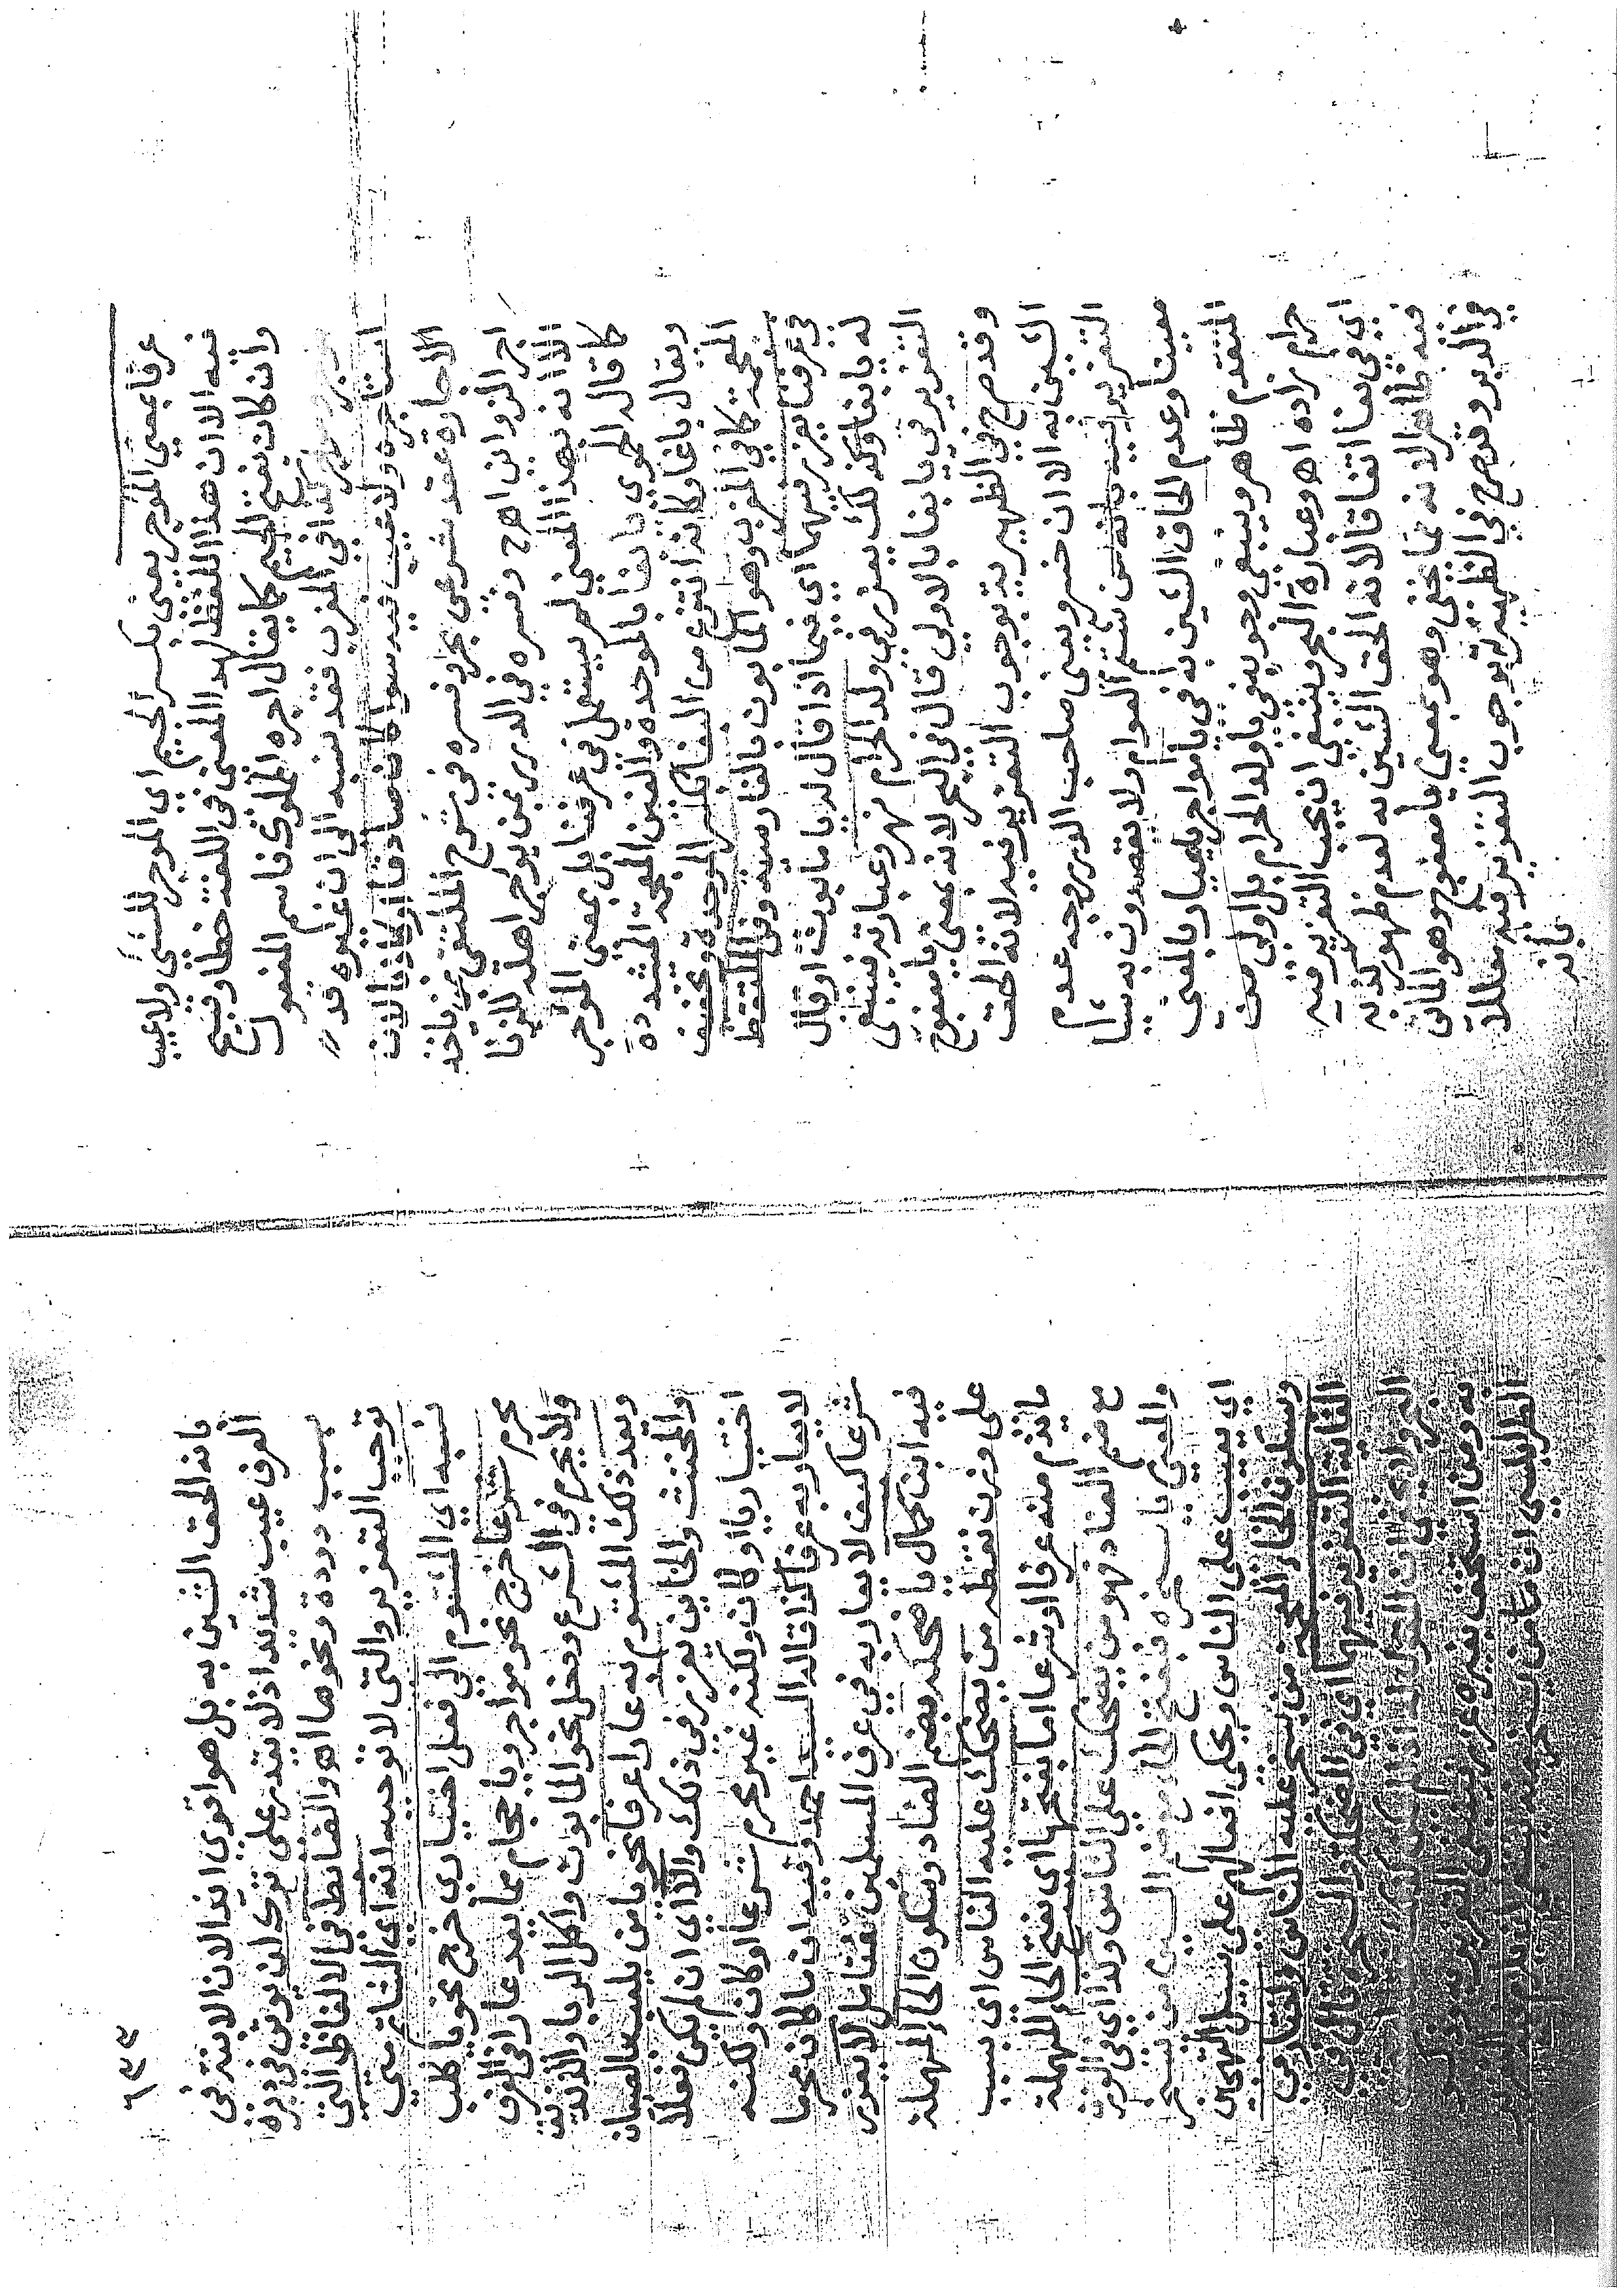 عرفا بمعني الموجر يعني بكسر الجيم اي الموجر للشئ ولا عيب
فيه الا ان هذا اللفظ لهذا المعني في اللغة خطا وقبيح
وان كان بفتح الجيم كما يقال اجره المملوك فاسم المفعول
كذا في المغرب فقد نسبه الي ان غيره قد
استاجره ولا عيب فيه سوا كان صادقا او كاذبا لان
الاجارة عقد شرعي بحر فسره في شرح الملتقي بمن ياخذ
اجر الزواني اهح وفسره في الدرر بمن يوجر اهله للزنا
الا انه بهذا المعني لم يستعمل في عرفنا بل بمعني الموجر
كما قاله الحموي يا بغا بالموحدة والغين المعجمة المشددة
ويقال باغا وكانه انتزعوه من البغا بكسر الموحدة وتخفيف
المعجمة كما في المغرب وهو المابون بالفارسية وفي الملتقط
في عرفنا يعزر فيهما اي فيما اذا قال له يا مابون او قال
له يا بغا وكذلك يعزر في ولد الحرام نهر وعبارته فينبغي
التعزير في يا بغا بالاولي قال في البحر لانه بمعني يا معفوج
وقد صرح في الظهيرية بوجوب التعزير فيه لانه الحق
الشين به الا ان خسرو يعني صاحب الدرر وجه عدم
التعزير فيه بانه من شتم العوام ولا يقصدون به شيا
معينا وعدم الحاق الشين به في يا مواجر يا عيار بالمعني
المتقدم ظاهر وينبغي وجوبه في يا ولد الحرام بل اولي من
حرام زاده اهـ وعبارة البحر وينبغي ان يجب التعزير فيه
اي في بغا اتفاقا لانه الحق الشين به لعدم ظهور كذبه
فيه ظاهرا لانه مما يخفي وهو بمعني يا معفوج وهو الماتي
في الدبر وقد صرح في الظهيرية بوجوب التعزير فيه معللا
بانه
بانه الحق الشين به بل هو اقوي ايذا لان الابنة في
العرف عيب شديد اذ لا يقدر علي ترك ان يوتي في دبره
بسبب دودة ونحوها اهـ والضابط في الالفاظ التي
توجب التعزير والتي لا توجبه انه اي الشاتم متي
نسبه اي المشتوم الي فعل اختياري خرج نحو يا كلب
محرم شرعا خرج نحو مواجر ويا حجام مما يعد عارا في العرف
ولا يحرم في الشرع ودخل نحو المابون واكل الربا والزانية
ويعد ذلك المشتوم به عارا عرفا نحو يا من يلعب بالصبيان
والمخنث والخاين يعزر في ذلك والا اي ان لم يكن فعلا
اختياريا او كان ولكنه غير محرم شرعا او كان ولكنه
لا يعار به عرفا كذا قاله السيد احمد وفيه ان ما كان محرما
شرعا كيف لا يعار به في عرف المسلمين فتامل لا يعزر
فيه ابن كمال يا ضحكه بضم الضاد وسكون الحا المهملة
علي وزن نقطه من يضحك عليه الناس اي بسبب
ما يذم منه عرفا او شرعا اما بفتحها اي بفتح الحا المهملة
مع ضم الضاد فهو من يضحك علي الناس وكذا اي في الوزن
والمعني يا سخره فبفتح الخا مع ضم السين من يسخر
اي يعيب علي الناس ويحكي افعالهم علي سبيل التهجين
وبسكون الخا المعجمة من يسخر عليه الناس واختار في
الغاية التعزير فيهما اي في الضحكة والسخرة قال في